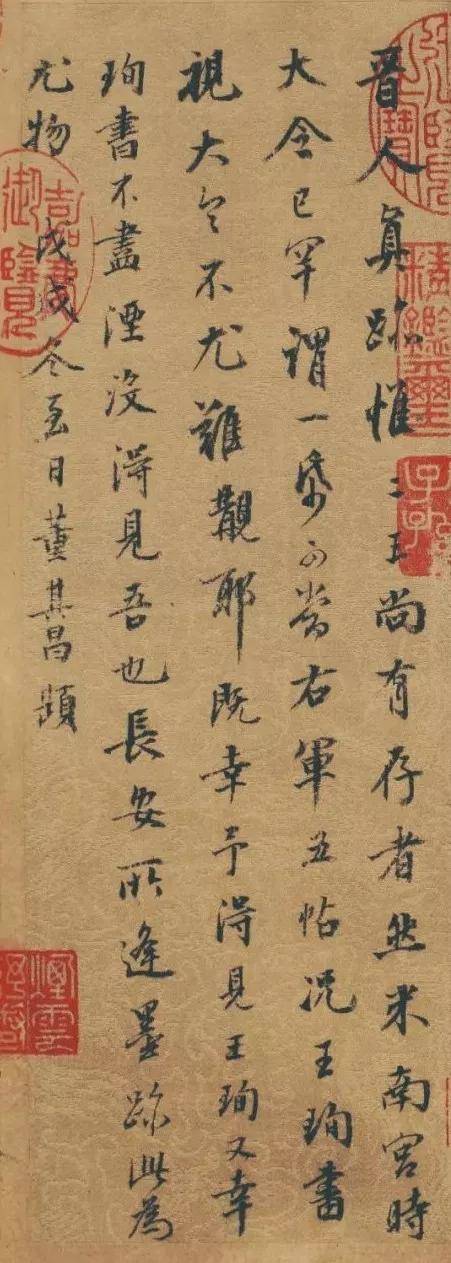 晉人真跡惟二王尚有存者然米南宮時
大令已罕謂一帋可當右軍五帖況王珣書
視大令不尤難覯耶既幸予得見王珣又幸
珣書不盡湮沒得見吾也長安所逢墨跡此為
尤物戊戌冬至日董其昌題